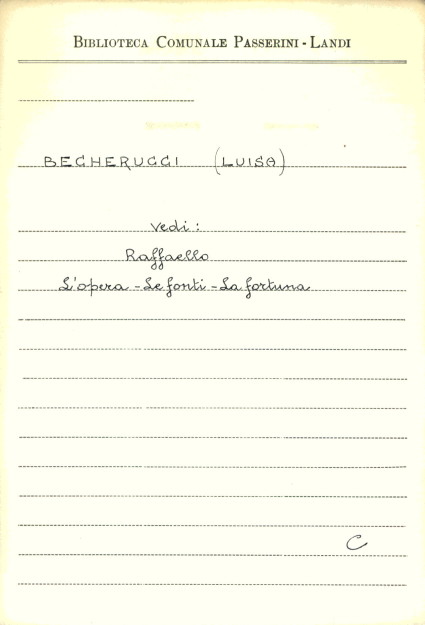 BIBLIOTECA COMUNALE PASSERINI - LANDI
BECHERUCCI (LUISA)
Vedi:
Raffaello
L'opera - Le fonti - La fortuna
C